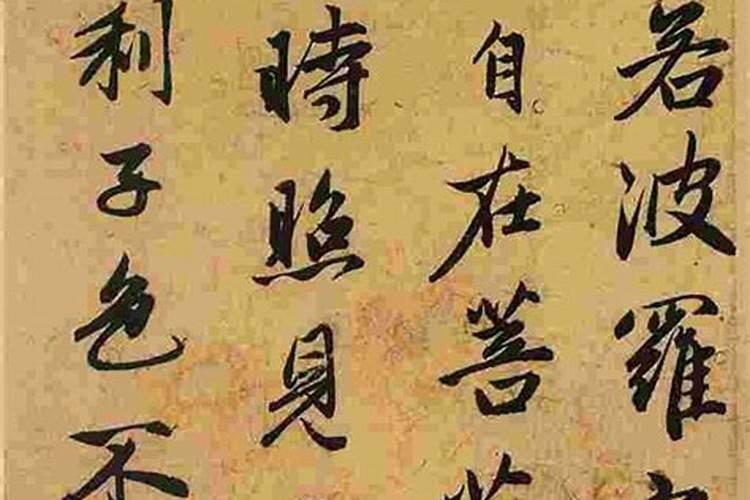 若波羅
自在菩
時照見
利子色不